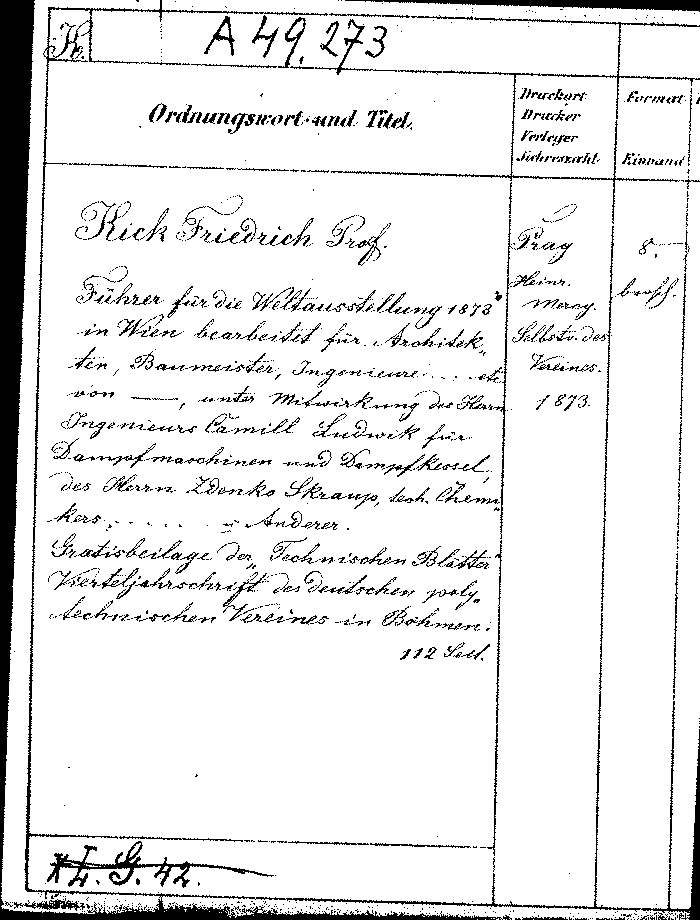 K.
A 49.273
Ordnungswort und Titel.
Druckort
Drucker
Verleger
Jahreszahl
Format
Einband
Kick Friedrich Prof.
Führer für die Weltausstellung 1873
in Wien bearbeitet für Architek„
ten, Baumeister, Ingenieure .... etc
von —, unter Mitwirkung des Herrn
Ingenieurs Camill Ludwik für
Dampfmaschinen und Dampfkessel,
des Herrn Zdenko Skraup, tech. Chemi„
kers, ..... u Anderer.
Gratisbeilage der „Technischen Blätter"
Vierteljahrschrift des deutschen poly„
technischen Vereines in Böhmen.
112 Seit.
Prag
Heinr.
Mercy.
Selbstv. des
Vereines.
1873.
8.
brosch.
G. 42.